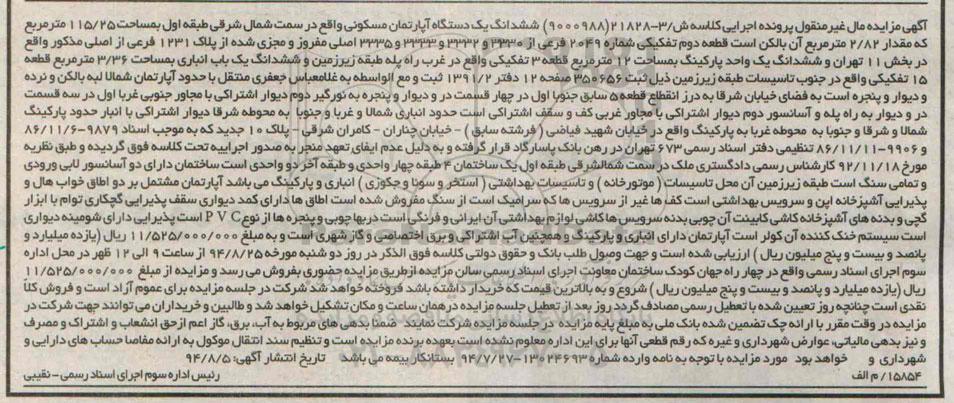 آگهی مزایده مال غیر منقول پرونده اجرایی کلاسه ش/۳-۲۱۸۲۸(۹۰۰۰۹۸۸) ششدانگ یک دستگاه آپارتمان مسکونی واقع در سمت شمال شرقی طبقه اول بمساحت ۱۱۵/۲۵ مترمربع
که مقدار ۲/۸۲ مترمربع آن بالکن است قطعه دوم تفکیکی شماره ۲۰۴۹ فرعی از ۳۳۳۰ و ۳۳۳۲ و ۳۳۳۳ و ۳۳۳۵ اصلی مفروز و مجزی شده از پلاک ۱۲۳۱ فرعی از اصلی مذکور واقع
در بخش ۱۱ تهران و ششدانگ یک واحد پارکینگ بمساحت ۱۲ مترمربع قطعه ۳ تفکیکی واقع در غرب راه پله طبقه زیرزمین و ششدانگ یک باب انباری بمساحت ۳/۳۶ مترمربع قطعه
۱۵ تفکیکی واقع در جنوب تاسیسات طبقه زیرزمین ذیل ثبت ۳۵۰۶۵۶ صفحه ۱۲ دفتر ۱۳۹۱/۲ ثبت و مع الواسطه به غلامعباس جعفری منتقل با حدود آپارتمان شمالا لبه بالکن و نرده
و دیوار و پنجره است به فضای خیابان شرقا به درز انقطاع قطعه ۵ سابق جنوبا اول در چهار قسمت در و دیوار و پنجره به نورگیر دوم دیوار اشتراکی با مجاور جنوبی غربا اول در سه قسمت
در و دیوار به راه پله و آسانسور دوم دیوار اشتراکی با مجاور غربی کف و سقف اشتراکی است حدود انباری شمالا و غربا و جنوبا به محوطه شرقا دیوار اشتراکی با انبار حدود پارکینگ
شمالا و شرقا و جنوبا به محوطه غربا به پارکینگ واقع در خیابان شهید فیاضی ( فرشته سابق ) - خیابان چناران - کامران شرقی - پلاک ۱۰ جدید که به موجب اسناد ۹۸۷۹-۸۶/۱۱/۶
و ۹۹۰۶-۸۶/۱۱/۱۱ تنظیمی دفتر اسناد رسمی ۶۷۳ تهران در رهن بانک پاسارگاد قرار گرفته و به دلیل عدم ایفای تعهد منجر به صدور اجراییه تحت کلاسه فوق گردیده و طبق نظریه
مورخ ۹۲/۱۱/۱۸ کارشناس رسمی دادگستری ملک در سمت شمالشرقی طبقه اول یک ساختمان ۴ طبقه چهار واحدی و طبقه آخر دو واحدی است ساختمان دارای دو آسانسور لابی ورودی
و تمامی سنگ است طبقه زیرزمین آن محل تاسیسات ( موتورخانه ) و تاسیسات بهداشتی ( استخر و سونا و جکوزی ) انباری و پارکینگ می باشد آپارتمان مشتمل بر دو اطاق خواب هال و
پذیرایی آشپزخانه اپن و سرویس بهداشتی است کف ها غیر از سرویس ها که سرامیک است از سنگ مفروش شده است اطاق ها دارای کمد دیواری سقف پذیرایی گچکاری توام با ابزار
گچی و بدنه های آشپزخانه کاشی کابینت آن چوبی بدنه سرویس ها کاشی لوازم بهداشتی آن ایرانی و فرنگی است دربها چوبی و پنجره ها از نوع P V C است پذیرایی دارای شومینه دیواری
است سیستم خنک کننده آن کولر است آپارتمان دارای انباری و پارکینگ و همچنین آب اشتراکی و برق اختصاصی و گاز شهری است و به مبلغ ۱۱/۵۲۵/۰۰۰/۰۰۰ ریال (یازده میلیارد و
پانصد و بیست و پنج میلیون ریال ) ارزیابی شده است و جهت وصول طلب بانک و حقوق دولتی کلاسه فوق الذکر در روز دو شنبه مورخه ۹۴/۸/۲۵ از ساعت ۹ الی ۱۲ ظهر در محل اداره
سوم اجرای اسناد رسمی واقع در چهار راه جهان کودک ساختمان معاونت اجرای اسناد رسمی سالن مزایده ازطریق مزایده حضوری بفروش می رسد و مزایده از مبلغ ۱۱/۵۲۵/۰۰۰/۰۰۰
ریال (یازده میلیارد و پانصد و بیست و پنج میلیون ریال ) شروع و به بالاترین قیمت که خریدار داشته باشد فروخته خواهد شد شرکت در جلسه مزایده برای عموم آزاد است و فروش کلا
نقدی است چنانچه روز تعیین شده با تعطیل رسمی مصادف گردد روز بعد از تعطیل جلسه مزایده در همان ساعت و مکان تشکیل خواهد شد و طالبین و خریداران می توانند جهت شرکت در
مزایده در وقت مقرر با ارائه چک تضمین شده بانک ملی به مبلغ پایه مزایده در جلسه مزایده شرکت نمایند ضمنا بدهی های مربوط به آب، برق، گاز اعم از حق انشعاب و اشتراک و مصرف
و نیز بدهی مالیاتی، عوارض شهرداری و غیره که رقم قطعی آنها برای این اداره معلوم نشده است بعهده برنده مزایده است و تنظیم سند انتقال موکول به ارائه مفاصا حساب های دارایی و
شهرداری و خواهد بود مورد مزایده با توجه به نامه وارده شماره ۱۳۰۲۴۶۹۳-۹۴/۷/۲۷ بستانکار بیمه می باشد تاریخ انتشار آگهی: ۹۴/۸/۵
۱۵۸۵۴/ م الف رئیس اداره سوم اجرای اسناد رسمی- نقیبی